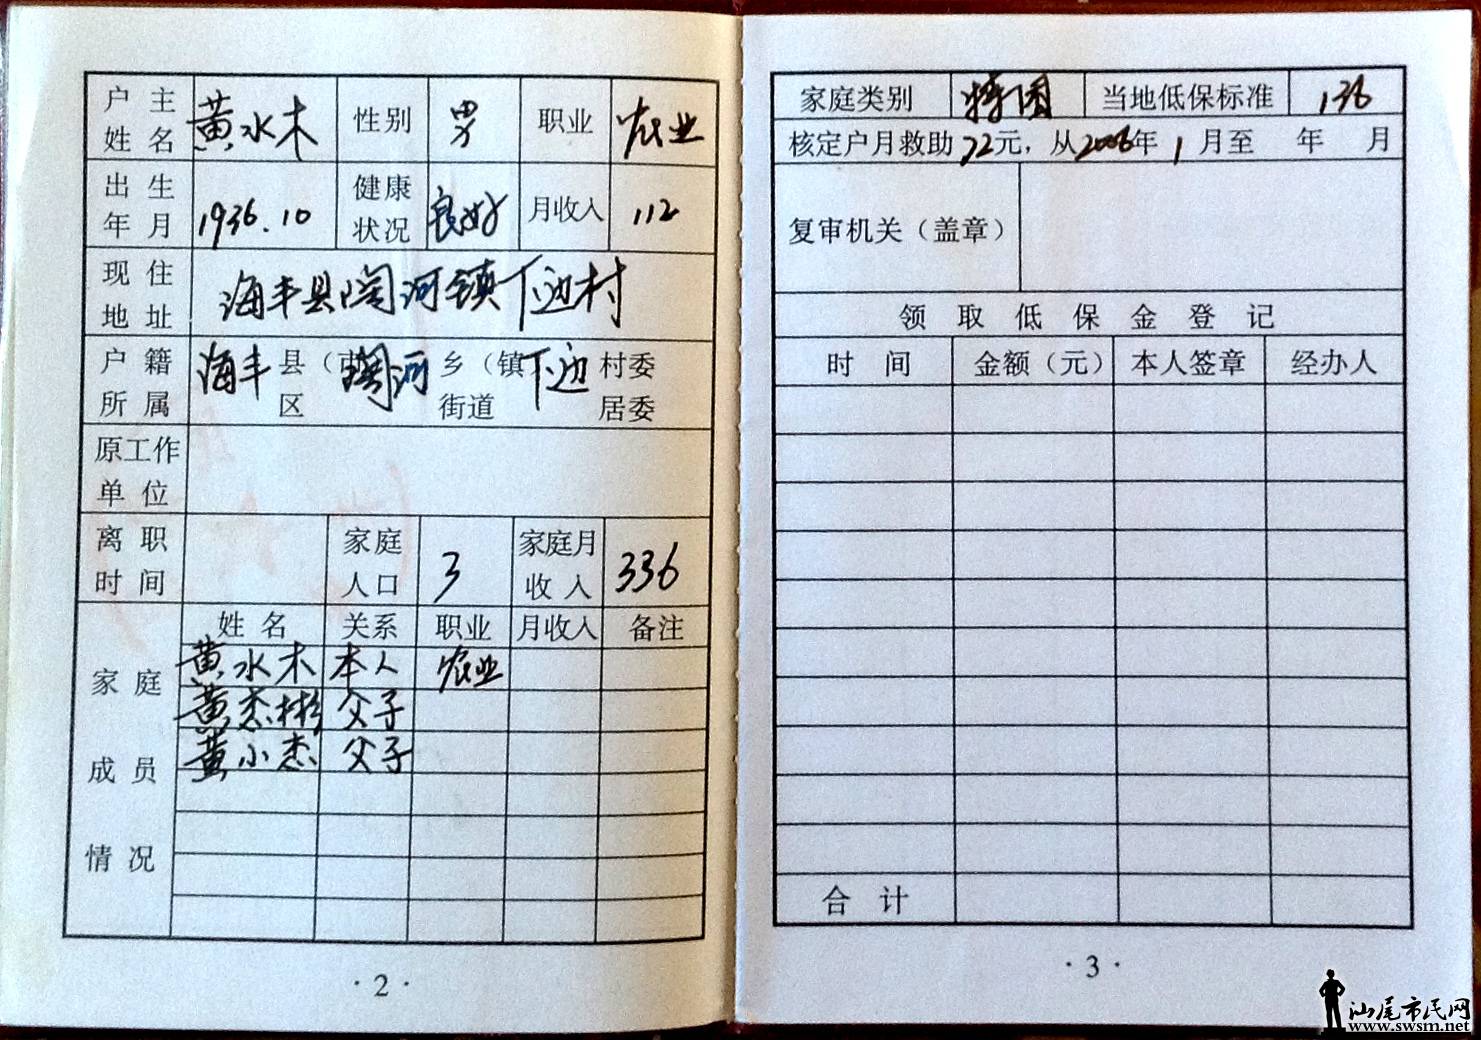 户主姓名 黄水木 性别 男 职业 农业
出生年月 1936.10 健康状况 良好 月收入 112
现住地址 海丰县陶河镇下边村
户籍所属 海丰 县（市 区 陶河 乡（镇 街道 下边 村委 居委
原工作单位
离职时间 家庭人口 3 家庭月收入 336
家庭成员情况 姓名 关系 职业 月收入 备注
黄水木 本人 农业
黄杰彬 父子
黄小杰 父子
·2·
家庭类别 特困 当地低保标准 136
核定户月救助72元，从2006年1月至 年 月
复审机关（盖章）
领取低保金登记
时间 金额（元） 本人签章 经办人
合计
·3·
汕尾市民网
www.swsm.net